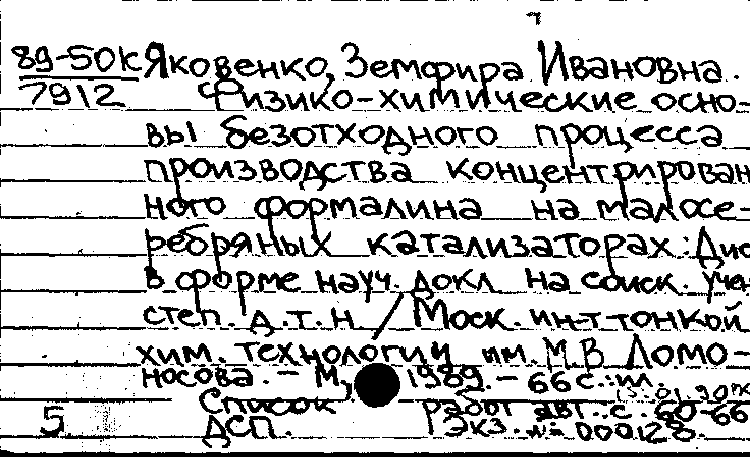 89-50К Яковенко, Земфира Ивановна.
7912 Физико-химические осно-
вы безотходного процесса
производства концентрирован
ного формалина на малосе-
ребряных катализаторах: Дис
в форме науч. докл на соиск. учен
степ. д.т.н / Моск. ин-т тонкой
хим. технологии им. М.В Ломо-
носова. - М, 1989. - 66 с.: ил.
Список работ авт.: с. 60-66
5. ДСП. Экз. № 000128.